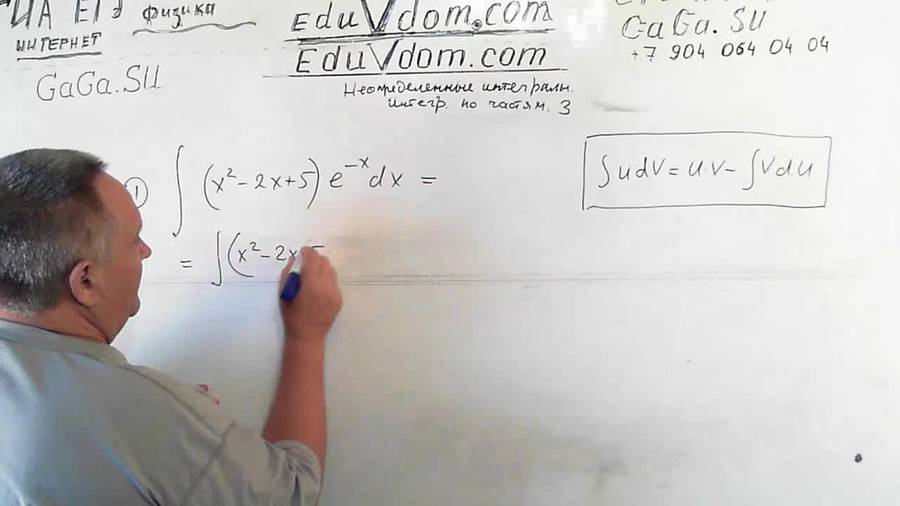 НА ЕГЭ физика
ИНТЕРНЕТ
GaGa.SU
EduVdom.com
EduVdom.com
Неопределенные интегралы.
интегр. по частям. 3
GaGa.SU
+7 904 064 04 04
① ∫(x²-2x+5)e⁻ˣdx =
= ∫(x²-2x
∫udV=u·V-∫Vdu